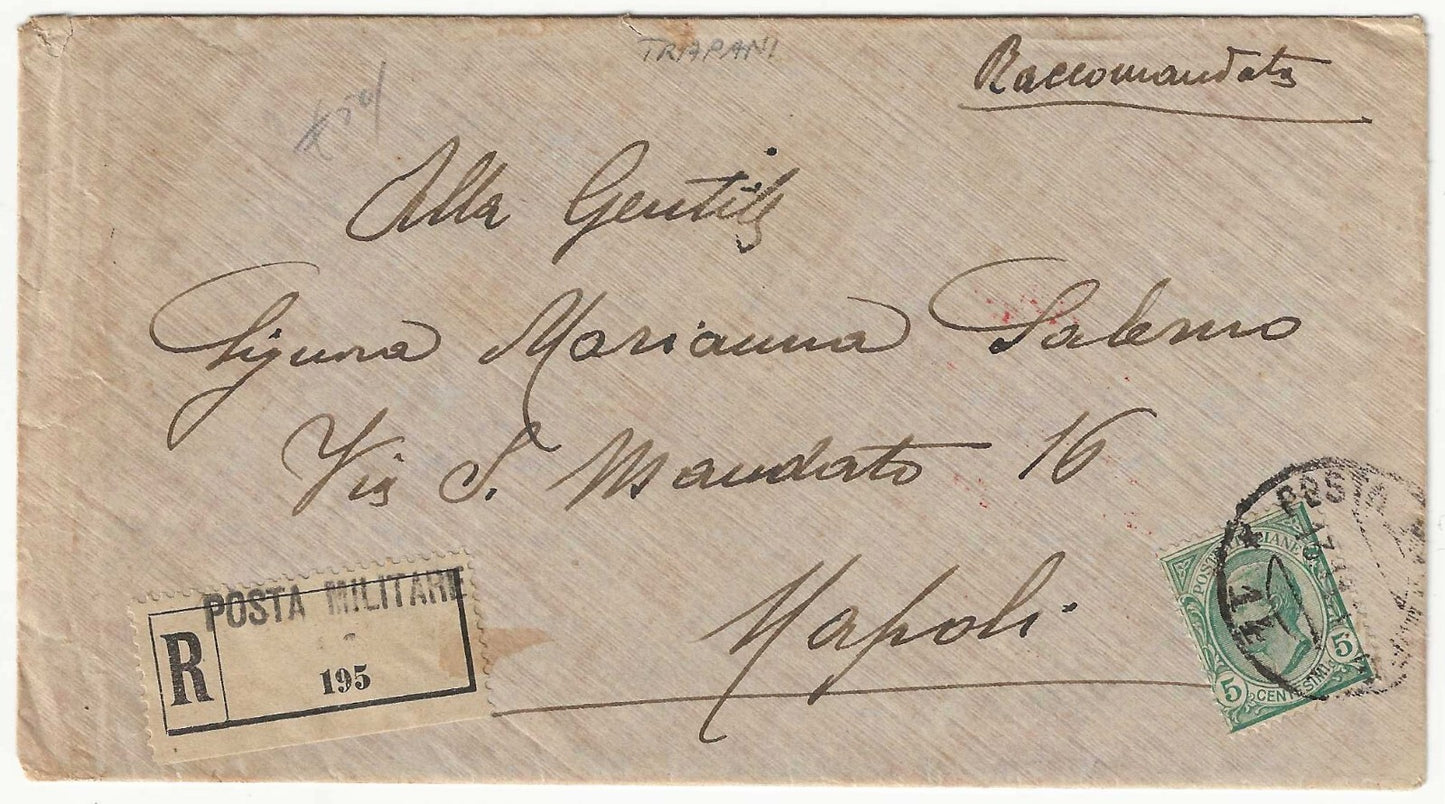 TRAPANI
Raccomandata
Alla Gentile
Signora Marianna Salerno
Via S. Mandato 16
Napoli
POSTA MILITARE
R
195
POSTE ITALIANE
5 CENTESIMI 5
POSTA